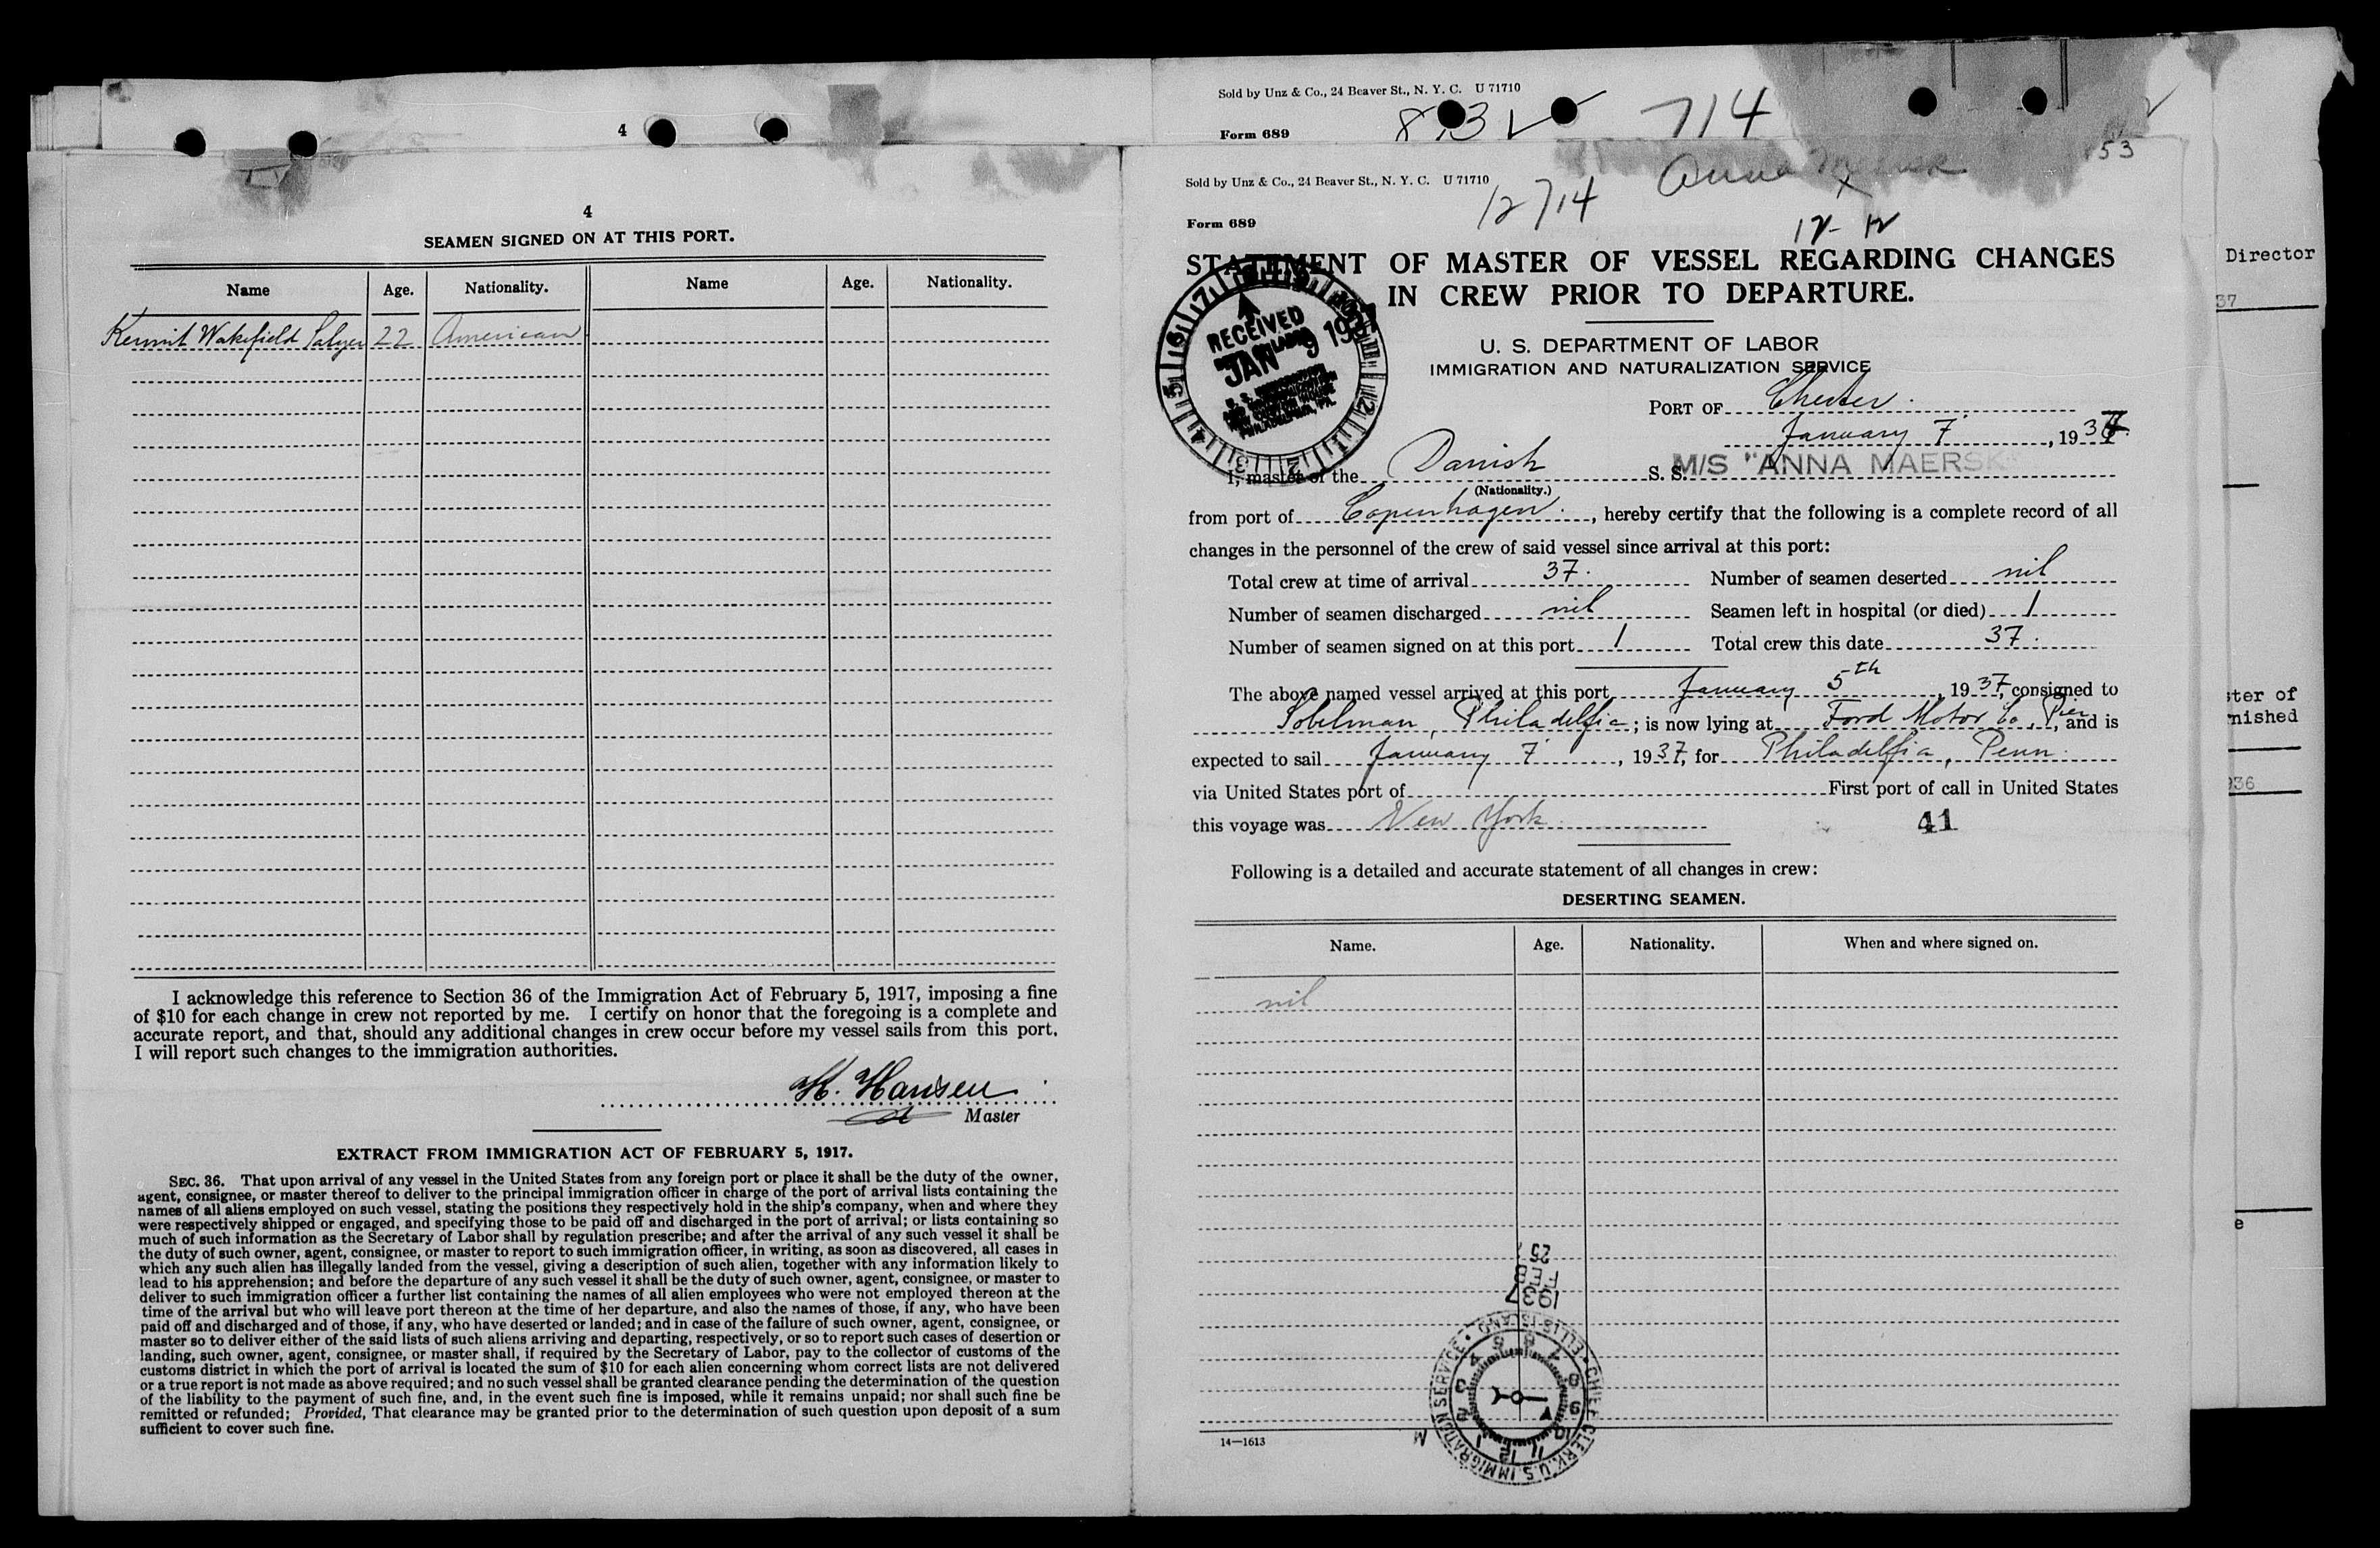 4
4
SEAMEN SIGNED ON AT THIS PORT.
Name Age. Nationality. Name Age. Nationality.
Kermit Wakefield Salyer 22 American
I acknowledge this reference to Section 36 of the Immigration Act of February 5, 1917, imposing a fine
of $10 for each change in crew not reported by me. I certify on honor that the foregoing is a complete and
accurate report, and that, should any additional changes in crew occur before my vessel sails from this port,
I will report such changes to the immigration authorities.
H. Hansen
Master
EXTRACT FROM IMMIGRATION ACT OF FEBRUARY 5, 1917.
SEC. 36. That upon arrival of any vessel in the United States from any foreign port or place it shall be the duty of the owner,
agent, consignee, or master thereof to deliver to the principal immigration officer in charge of the port of arrival lists containing the
names of all aliens employed on such vessel, stating the positions they respectively hold in the ship's company, when and where they
were respectively shipped or engaged, and specifying those to be paid off and discharged in the port of arrival; or lists containing so
much of such information as the Secretary of Labor shall by regulation prescribe; and after the arrival of any such vessel it shall be
the duty of such owner, agent, consignee, or master to report to such immigration officer, in writing, as soon as discovered, all cases in
which any such alien has illegally landed from the vessel, giving a description of such alien, together with any information likely to
lead to his apprehension; and before the departure of any such vessel it shall be the duty of such owner, agent, consignee, or master to
deliver to such immigration officer a further list containing the names of all alien employees who were not employed thereon at the
time of the arrival but who will leave port thereon at the time of her departure, and also the names of those, if any, who have been
paid off and discharged and of those, if any, who have deserted or landed; and in case of the failure of such owner, agent, consignee, or
master so to deliver either of the said lists of such aliens arriving and departing, respectively, or so to report such cases of desertion or
landing, such owner, agent, consignee, or master shall, if required by the Secretary of Labor, pay to the collector of customs of the
customs district in which the port of arrival is located the sum of $10 for each alien concerning whom correct lists are not delivered
or a true report is not made as above required; and no such vessel shall be granted clearance pending the determination of the question
of the liability to the payment of such fine, and, in the event such fine is imposed, while it remains unpaid; nor shall such fine be
remitted or refunded; Provided, That clearance may be granted prior to the determination of such question upon deposit of a sum
sufficient to cover such fine.
Sold by Unz & Co., 24 Beaver St., N. Y. C. U 71710
Form 689
714
53
Sold by Unz & Co., 24 Beaver St., N. Y. C. U 71710
Anna Maersk
12714
Form 689
12-12
STATEMENT OF MASTER OF VESSEL REGARDING CHANGES
IN CREW PRIOR TO DEPARTURE.
RECEIVED
JAN 9 1937
PHILADELPHIA, PA.
U. S. DEPARTMENT OF LABOR
IMMIGRATION AND NATURALIZATION SERVICE
PORT OF Chester.
January 7, 1937.
I, master of the Danish S. S. M/S "ANNA MAERSK"
(Nationality.)
from port of Copenhagen., hereby certify that the following is a complete record of all
changes in the personnel of the crew of said vessel since arrival at this port:
Total crew at time of arrival 37. Number of seamen deserted nil
Number of seamen discharged nil Seamen left in hospital (or died) 1
Number of seamen signed on at this port 1 Total crew this date 37.
The above named vessel arrived at this port January 5th, 1937, consigned to
Sobelman, Philadelfia; is now lying at Ford Motor Co. Pier, and is
expected to sail January 7, 1937, for Philadelfia, Penn.
via United States port of First port of call in United States
this voyage was New York.
41
Following is a detailed and accurate statement of all changes in crew:
DESERTING SEAMEN.
Name. Age. Nationality. When and where signed on.
nil
1937
FEB
25
CHIEF CLERK U.S. IMMIGRATION SERVICE • ELLIS ISLAND
M
14—1613
Director
37
ster of
nished
936
e